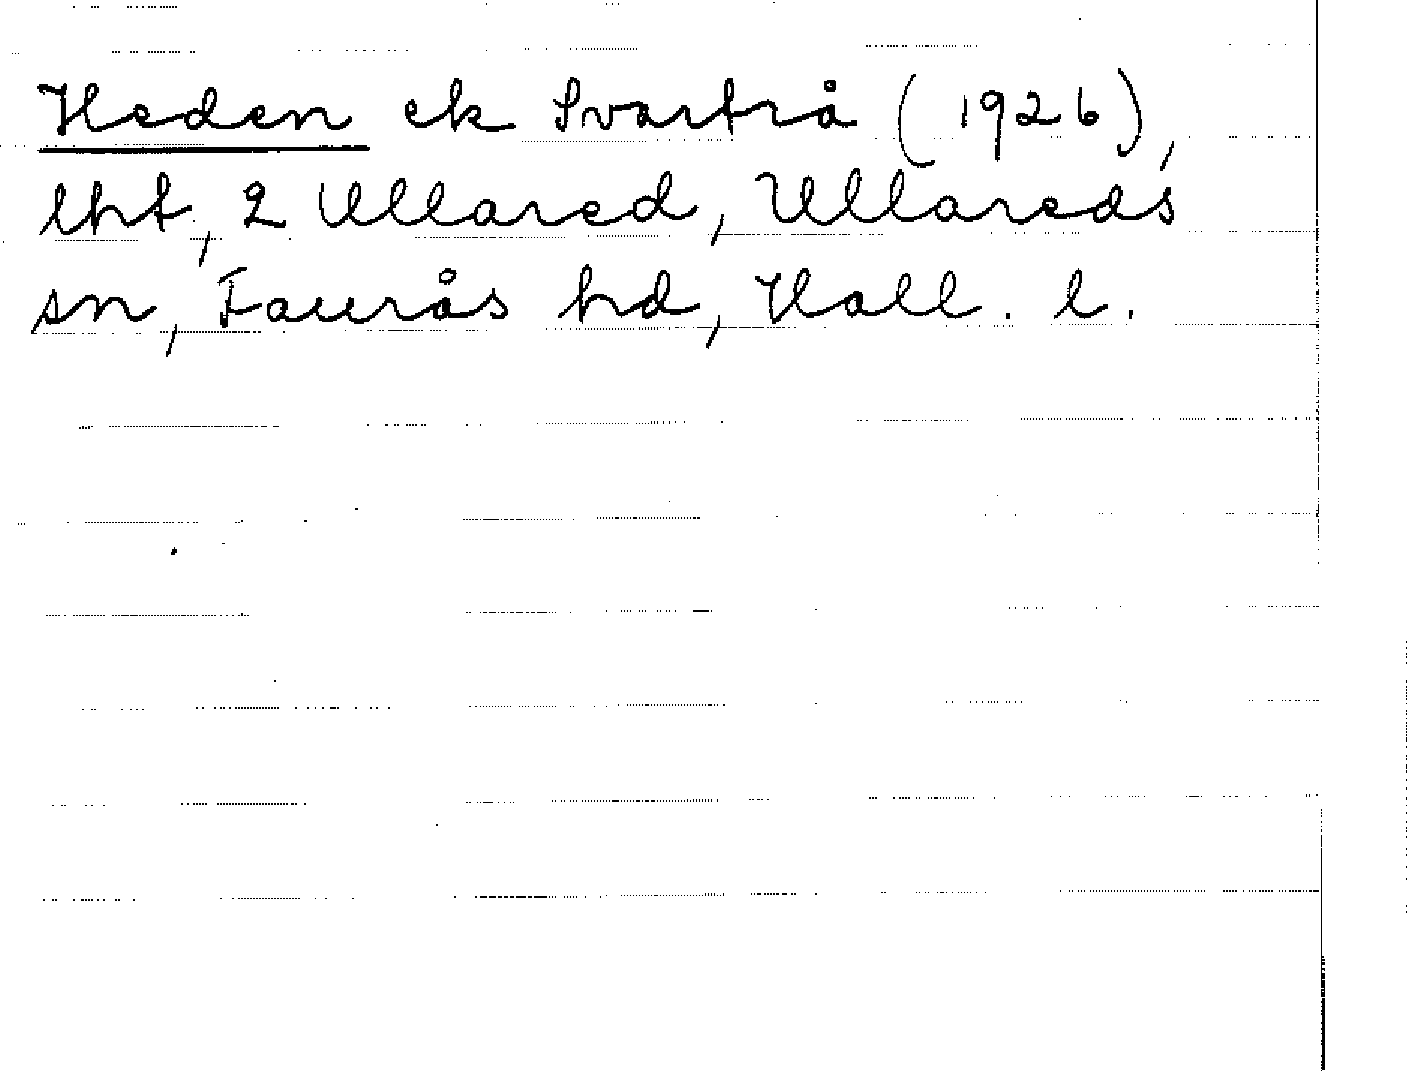 Heden ek Svartrå (1926),
lht, 2 Ullared, Ullareds
sn, Faurås hd, Hall. l.